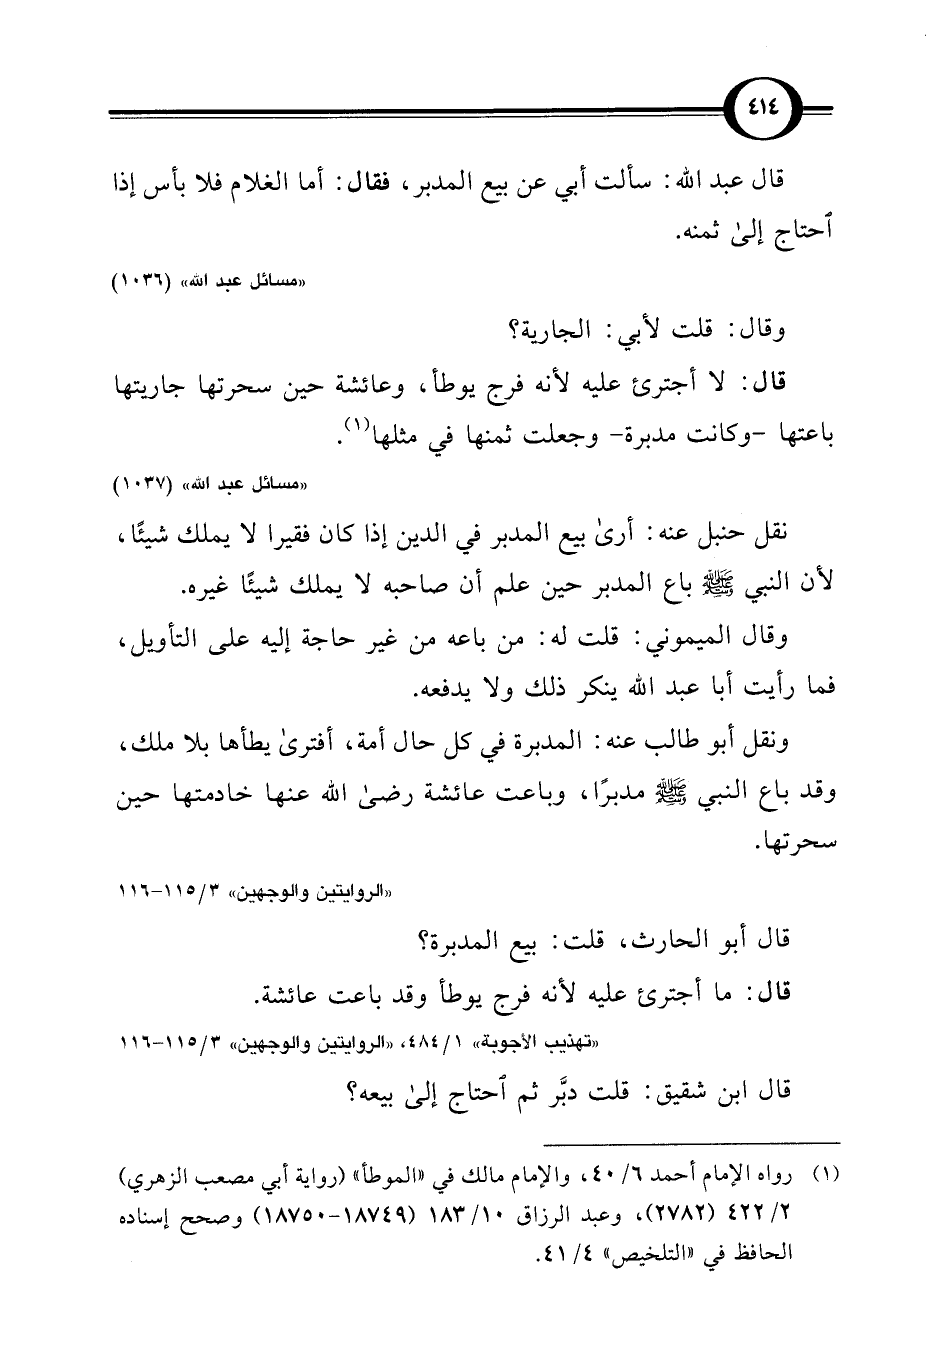 ٤١٤
قال عبد الله: سألت أبي عن بيع المدبر، فقال: أما الغلام فلا بأس إذا
ٱحتاج إلىٰ ثمنه.
«مسائل عبد الله» (١٠٣٦)
وقال: قلت لأبي: الجارية؟
قال: لا أجترئ عليه لأنه فرج يوطأ، وعائشة حين سحرتها جاريتها
باعتها -وكانت مدبرة- وجعلت ثمنها في مثلها(١).
«مسائل عبد الله» (١٠٣٧)
نقل حنبل عنه: أرىٰ بيع المدبر في الدين إذا كان فقيرا لا يملك شيئًا،
لأن النبي ﷺ باع المدبر حين علم أن صاحبه لا يملك شيئًا غيره.
وقال الميموني: قلت له: من باعه من غير حاجة إليه على التأويل،
فما رأيت أبا عبد الله ينكر ذلك ولا يدفعه.
ونقل أبو طالب عنه: المدبرة في كل حال أمة، أفترىٰ يطأها بلا ملك،
وقد باع النبي ﷺ مدبرًا، وباعت عائشة رضىٰ الله عنها خادمتها حين
سحرتها.
«الروايتين والوجهين» ٣/ ١١٥-١١٦
قال أبو الحارث، قلت: بيع المدبرة؟
قال: ما أجترئ عليه لأنه فرج يوطأ وقد باعت عائشة.
«تهذيب الأجوبة» ١/ ٤٨٤، «الروايتين والوجهين» ٣/ ١١٥-١١٦
قال ابن شقيق: قلت دبَّر ثم ٱحتاج إلىٰ بيعه؟
(١) رواه الإمام أحمد ٦/ ٤٠، والإمام مالك في «الموطأ» (رواية أبي مصعب الزهري)
٢/ ٤٢٢ (٢٧٨٢)، وعبد الرزاق ١٠/ ١٨٣ (١٨٧٤٩-١٨٧٥٠) وصحح إسناده
الحافظ في «التلخيص» ٤/ ٤١.